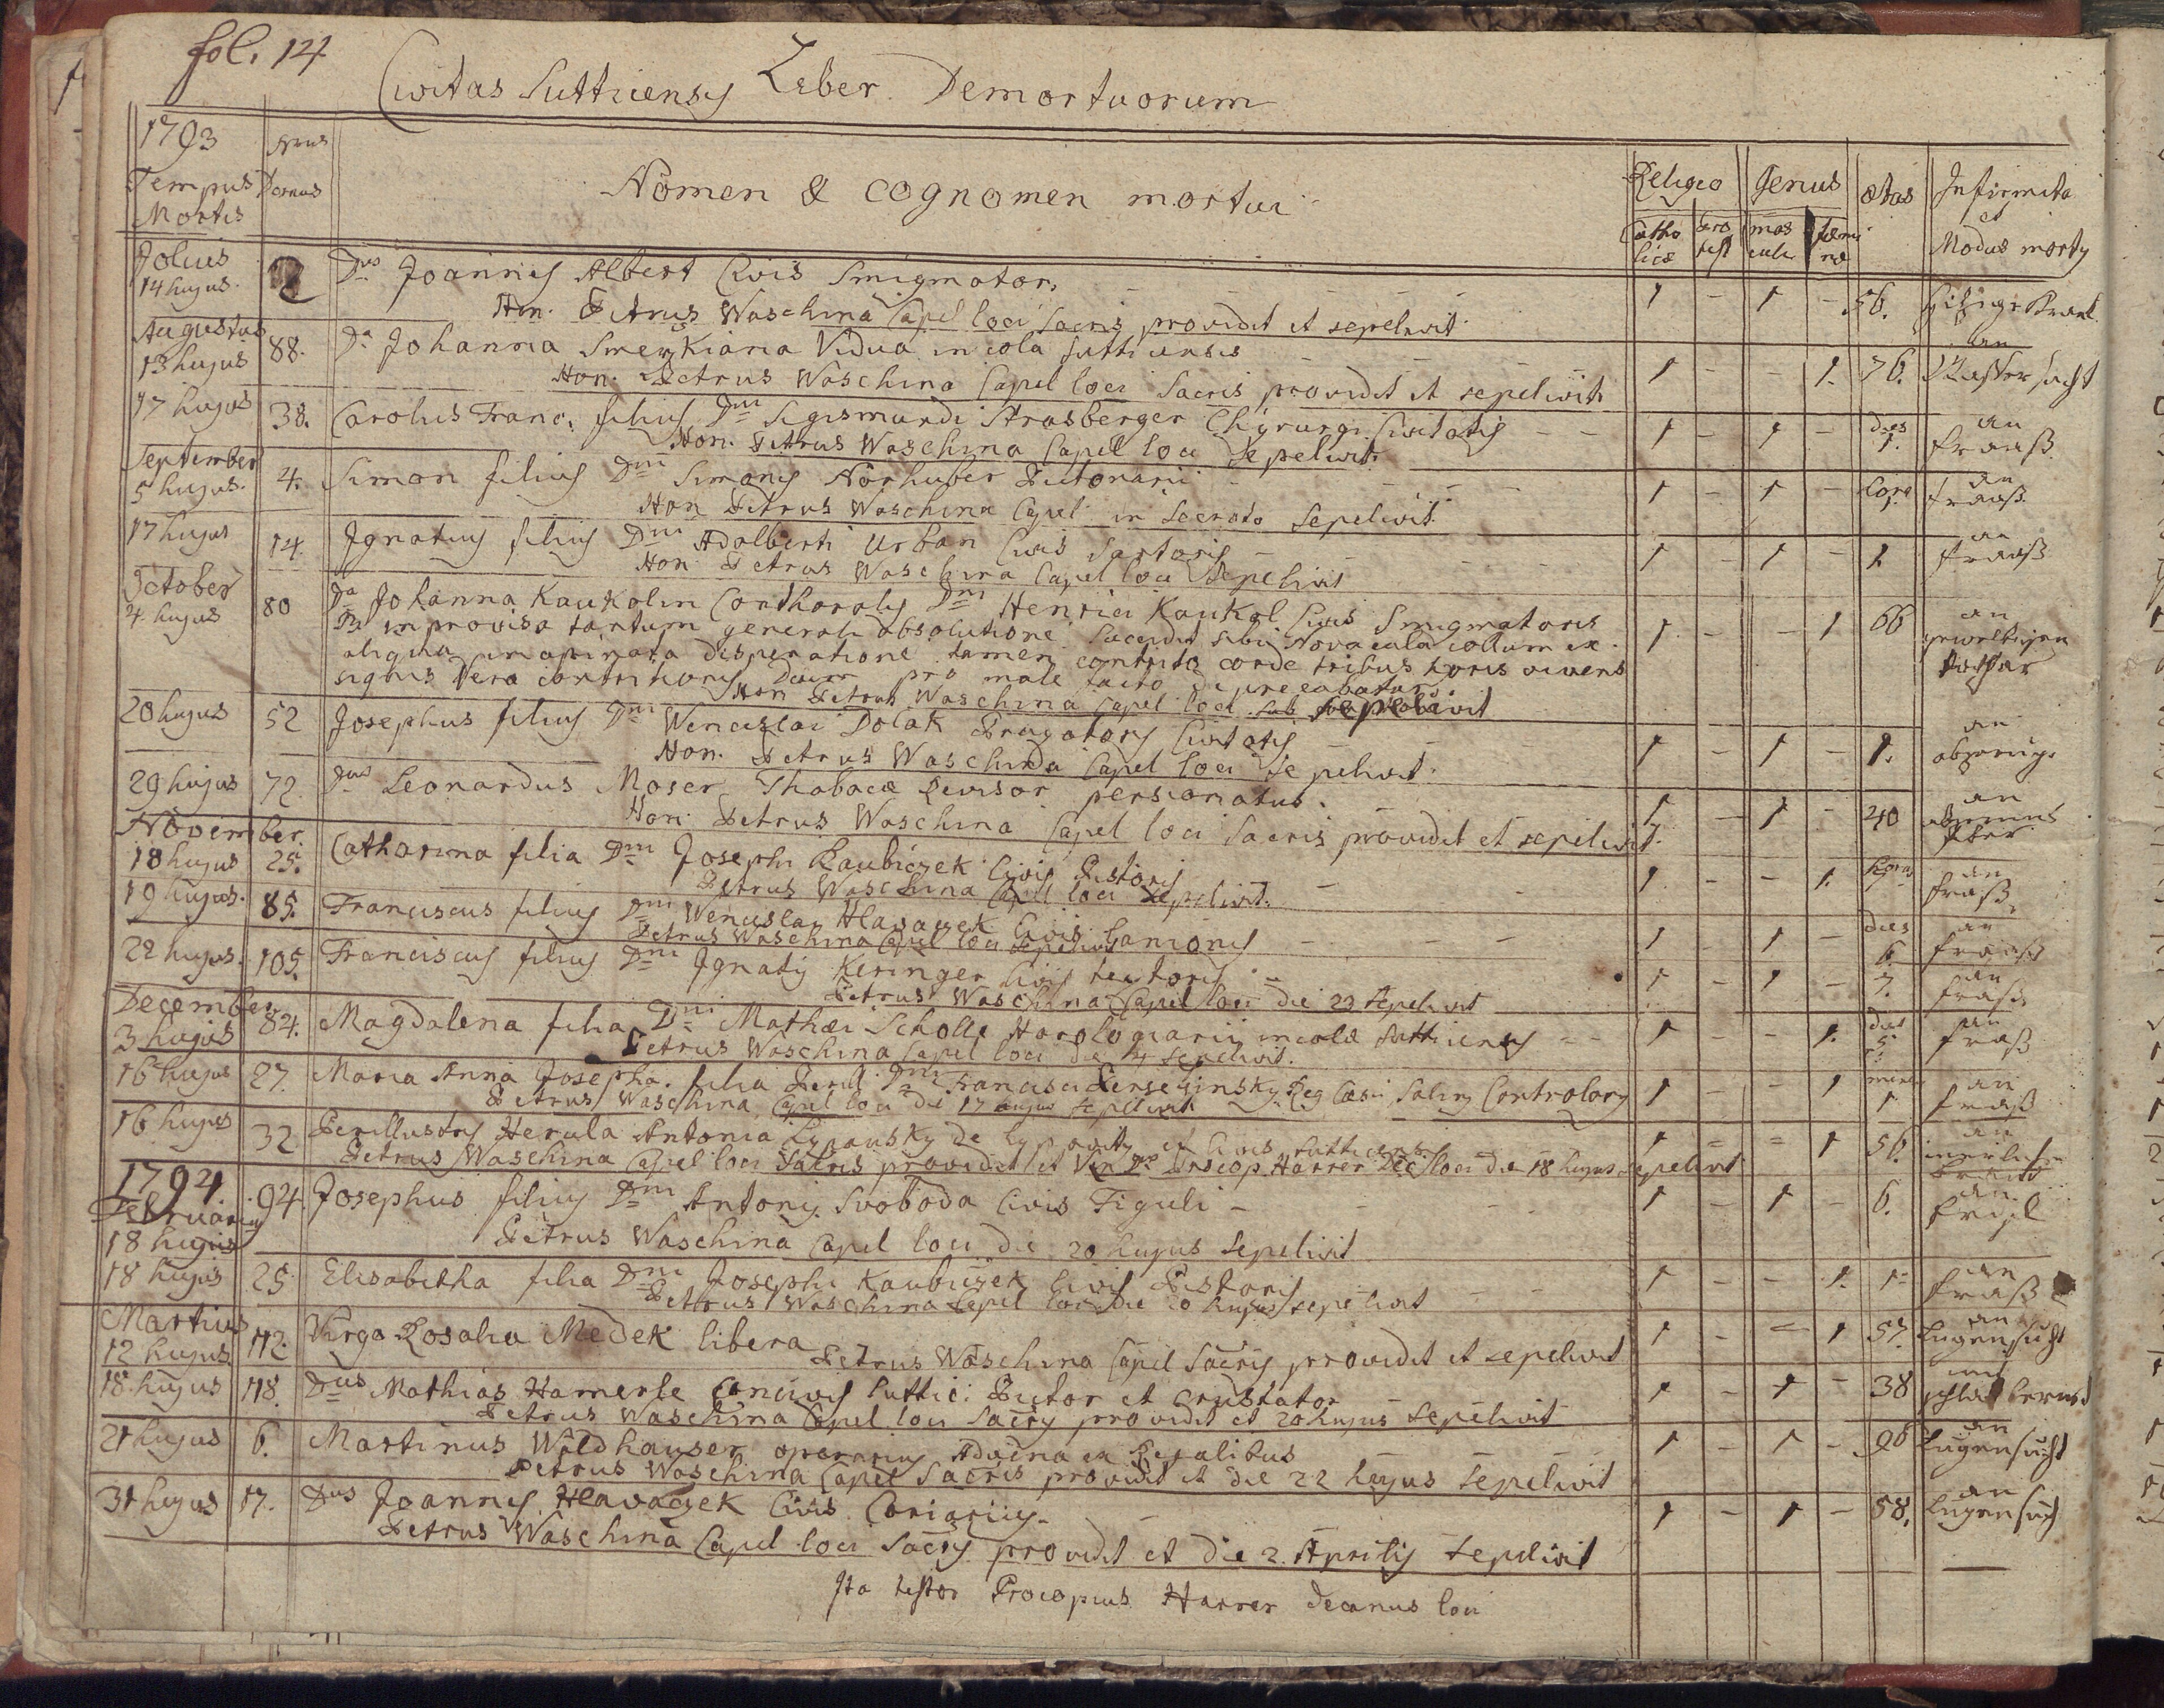 fol. 14
Civitas Sutticensis Liber Demortuorum
1793 Nrus
Tempus Domus Nomen & cognomen mortui Religio Genus ætas Infirmitas
Mortis et
Catho licæ mas culi foemi næ Modus mortis
Julius
14 hujus. 12 Dnus Joannes Albert Civis Smigmator. 1 - 1 - 56. hitzige Krank.
Hon. Petrus Waschina Capel loci Sacris providit et sepelivit.
Augustus
13 hujus 88. Da Johanna Smerzkiana Vidua incola Sutticensis 1 - - 1. 76. an Wassersucht
Hon. Petrus Waschina Capel loci Sacris providit et sepelivit
17 hujus 38. Carolus Franc. filius Dni Sigismundi Strasberger Chyrurgi Civitatis 1 - 1 - dies 1. an Fraaß
Hon. Petrus Waschina Capel loci Sepelivit.
September
5 hujus. 4. Simon filius Dni Simonis Nörhuber 1 - 1 - an Fraaß
Hon Petrus Waschina Capel in Sacrato Sepelivit.
17 hujus 14. Ignatius filius Dni Adalberti Urban Civis Sartoris 1 - 1 - 1 an Fraaß
Hon Petrus Waschina Capel loci Sepelivit
October
4. hujus 80 Da Johanna Kaukolin Conthoralis Dni Henrici Kaukol Civis Smigmatoris 1 - - 1 66 an gewaltigen
improvisa tantum generali absolutione succidit sibi Novacula collum ex
aliqua inopinata disperatione tamen contrito corde tribus horis vivens
signis Vera contritionis Deum pro male facto deprecabatur.
Hon Petrus Waschina Capel loci sepelivit
20 hujus 52 Josephus filius Dni Wenceslai Dolak Civitatis 1 - 1 - 1. an
Hon. Petrus Waschina Capel loci Sepelivit.
29 hujus 72. Dnus Leonardus Moser Thabacæ Revisor pensionatus. 1 - 1 - 40 an
Hon. Petrus Waschina Capel loci Sacris providit et sepelivit.
November.
18 hujus 25. Catharina filia Dni Josephi Kaubiczek Civis Pistoris 1 - - 1. an Fraß
Petrus Waschina Capel loci Sepelivit.
19 hujus. 85. Franciscus filius Dni Wenceslai Hlavaczek Civis Lanionis 1 - 1 - dies 6. an Fraaß
Petrus Waschina Capel loci Sepelivit
22 hujus. 105. Franciscus filius Dni Ignatii Keringer Civis textoris 1 - 1 - 7. an Fraß
Petrus Waschina Capel loci die 23 sepelivit
December
3 hujus 84. Magdalena filia Dni Mathæi Scholle Horologiarii incolæ Sutticensis 1 - - 1. dies 5 an Fraß
Petrus Waschina Capel loci die 4 sepelivit.
16 hujus 27. Maria Anna Josepha filia Dni Francisci Reg Cæsii Salis Controloris 1 - - 1 1 an Fraß
Petrus Waschina Capel loci die 17 hujus sepelivit
16 hujus 32 Perillustris Herula Antonia civis Sutticens. 1 - - 1 56. an
Petrus Waschina Capel loci Sacris providit et Ven Dnus Procop. Harrer Dec loci die 18 hujus sepelivit
1794
Februarius
18 hujus 94. Josephus filius Dni Antonii Svoboda Civis Figuli 1 - 1 - 6. an
Petrus Waschina Capel loci die 20 hujus Sepelivit
18 hujus 25 Elisabetha filia Dni Josephi Kaubiczek Civis Pistoris 1 - - 1. 1 an Fraß
Petrus Waschina Capel loci die 20 hujus sepelivit
Martius
12 hujus 112. Virgo Rosalia Medek libera 1 - - 1 57. an Lugensucht
Petrus Waschina Capel Sacris providit et sepelivit
18. hujus 118. Dnus Mathias Hamerle concivis Suttic: Pictor et crustator 1 - 1 - 38
Petrus Waschina Capel loci Sacris providit et 20 hujus Sepelivit
21 hujus 6. Martinus Woldhauser operarius Advena ex Regalibus 1 - 1 - 96 an Lugensucht
Petrus Waschina Capel Sacris providit et die 22 hujus Sepelivit
31 hujus 17. Dnus Joannes Hlavaczek Civis Coriarius. 1 - 1 - 58. an Lugensuch
Petrus Waschina Capel loci Sacris providit et die 2. Aprilis Sepelivit
Ita testor Procopius Harrer Decanus loci